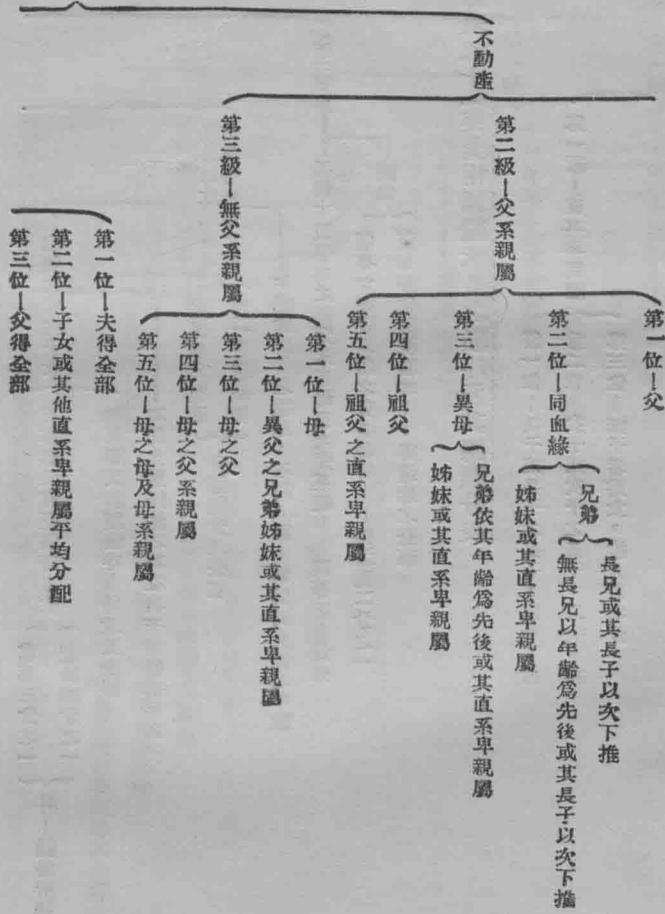 不動產
第二級—父系親屬
第一位—父
第二位—同血緣
兄弟
長兄或其長子以次下推
無長兄以年齡爲先後或其長子以次下推
姊妹或其直系卑親屬
第三位—異母
兄弟依其年齡爲先後或其直系卑親屬
姊妹或其直系卑親屬
第四位—祖父
第五位—祖父之直系卑親屬
第三級—無父系親屬
第一位—母
第二位—異父之兄弟姊妹或其直系卑親屬
第三位—母之父
第四位—母之父系親屬
第五位—母之母及母系親屬
第一位—夫得全部
第二位—子女或其他直系卑親屬平均分配
第三位—父得全部